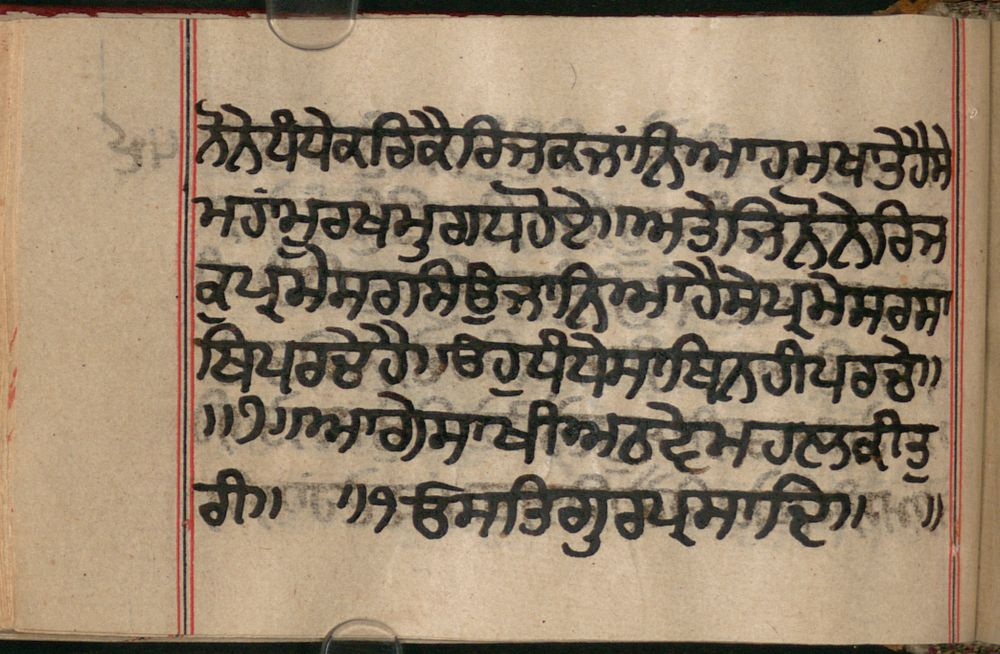 ਨੋਨੇਧੰਧੇਕਰਿਕੈਰਿਜਕਜਾਂਨਿਆਹਮਖਾਤੇਹੈਸੇ
ਮਹਾਂਮੂਰਖਮੁਗਧਹੋਏ॥ਅਤੇਜਿਨੋਨੇਰਿਜ
ਕੁਪ੍ਰਮੇਸਰਸਿਉਜਾਨਿਆਹੈਸੇਪ੍ਰਮੇਸਰਸਾ
ਥਿਪਰਚੇਹੈ॥ਓਹੁਧੰਧੇਸਾਥਿਨਹੀਪਰਚੇ॥
॥੭॥ਆਗੇਸਾਖੀਅਠਵੇਮਹਲਕੀਤੁ
ਰੀ॥ ॥੧ਓਸਤਿਗੁਰਪ੍ਰਸਾਦਿ॥ ॥